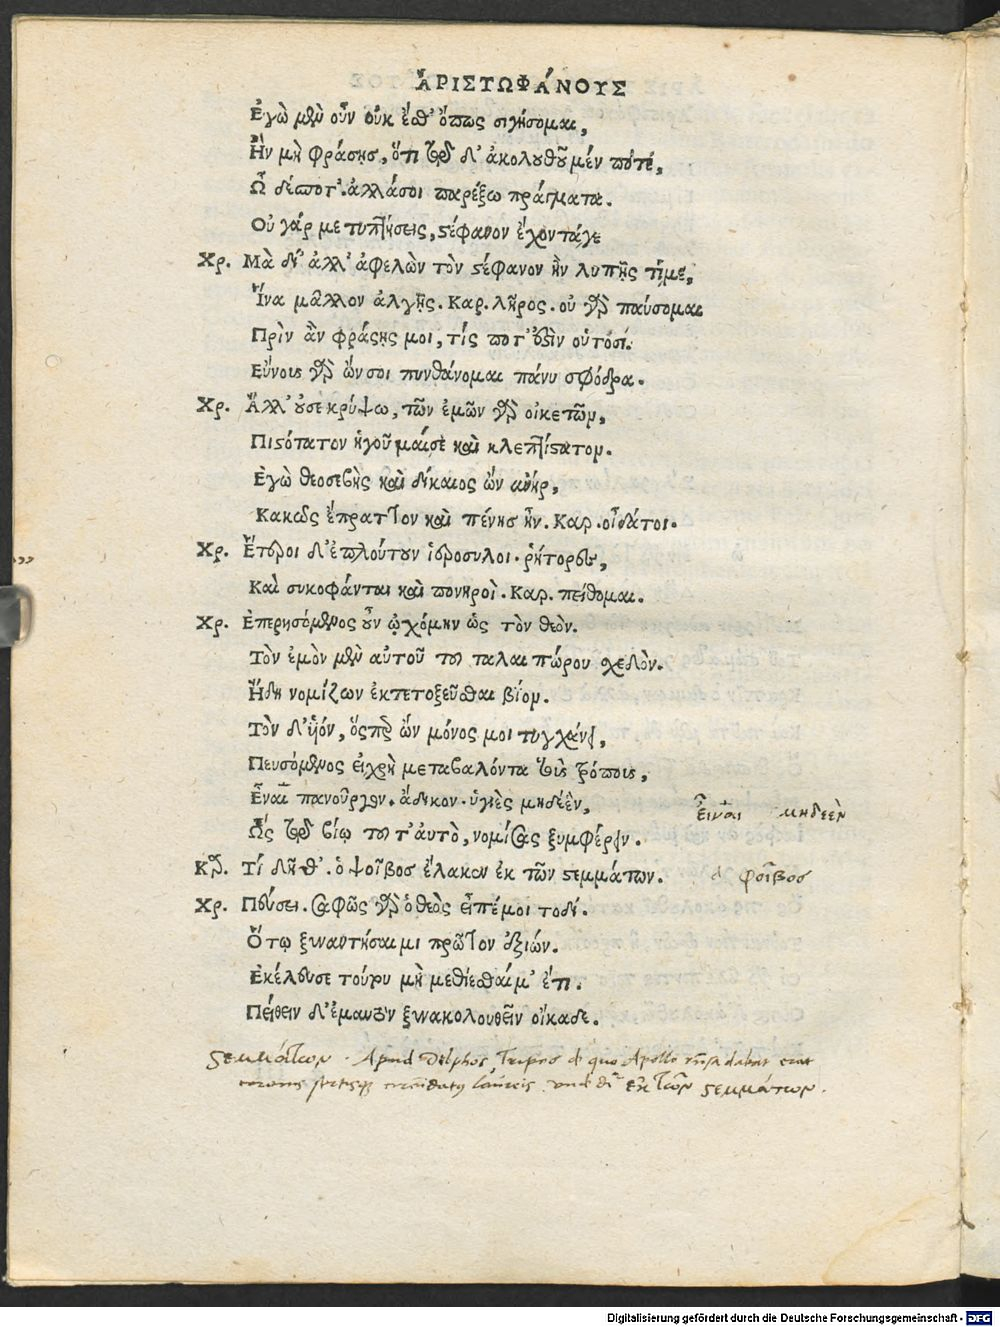 ἈΡΙΣΤΩΦΆΝΟΥΣ
Ἐγὼ μὲν οὖν οὐκ ἔσθ' ὅπως σιγήσομαι,
Ἢν μὴ φράσῃς, ὅτι τῷδ' ἀκολουθοῦμέν ποτέ,
Ὦ δέσποτ'. ἀλλάσοι παρέξω πράγματα.
Οὐ γάρ με τυπτήσεις, στέφανον ἔχοντάγε
Χρ. Μὰ δί' ἀλλ' ἀφελὼν τὸν στέφανον ἢν λυπῇς τίμε,
Ἵνα μᾶλλον ἀλγῇς. Καρ. λῆρος. οὐ γὰρ παύσομαι
Πρὶν ἂν φράσῃς μοι, τίς ποτ' ἐστὶν οὑτόσί.
Εὔνους γὰρ ὤν σοι πυνθάνομαι πάνυ σφόδρα.
Χρ. Ἀλλ' οὔσε κρύψω, τῶν ἐμῶν γὰρ οἰκετῶν,
Πιστότατον ἡγοῦμαίσὲ καὶ κλεπτίστατον.
Ἐγὼ θεοσεβὴς καὶ δίκαιος ὢν ἀνὴρ,
Κακῶς ἔπραττον καὶ πένης ἦν. Καρ. οἶδάτοι.
Χρ. Ἕτεροι δ' ἐπλούτουν ἱερόσυλοι. ῥήτορες,
Καὶ συκοφάνται καὶ πονηροὶ. Καρ. πείθομαι.
Χρ. Ἐπερησόμενος οὖν ᾠχόμην ὡς τὸν θεὸν.
Τὸν ἐμὸν μὲν αὐτοῦ του ταλαιπώρου σχεδὸν.
Ἤδη νομίζων ἐκτετοξεῦσθαι βίον.
Τὸν δ' ὑιόν, ὅσπερ ὢν μόνος μοι τυγχάνει,
Πευσόμενος εἰχρὴ μεταβαλόντα τοὺς τρόπους,
Εἶναι πανοῦργον. ἄδικον. ὑγιὲς μηδεὲν,
Ὡς τῷ βίῳ τουτ' αὐτὸ, νομίσας ξυμφέρειν.
εἶναι μηδεὲν
Κρ. Τί δῆθ'. ὁ ψοῖβος ἔλακεν ἐκ τῶν στεμμάτων.
ὁ φοῖβος
Χρ. Πεύσει. σαφῶς γὰρ ὁ θεὸς εἶπέμοι τοδί.
Ὅτῳ ξυναντήσαιμι πρῶτον ἐξιών.
Ἐκέλευσε τούτου μὴ μεθίεσθαίμ' ἔτι.
Πείθειν δ' ἐμαυτὸν ξυνακολουθεῖν οἴκαδε.
στεμμάτων. Apud Delphos, Tripos de quo Apollo rnsa dabat erat
coronis sertisque laureis. unde di ἐκ τῶν στεμμάτων.
Digitalisierung gefördert durch die Deutsche Forschungsgemeinschaft - DFG